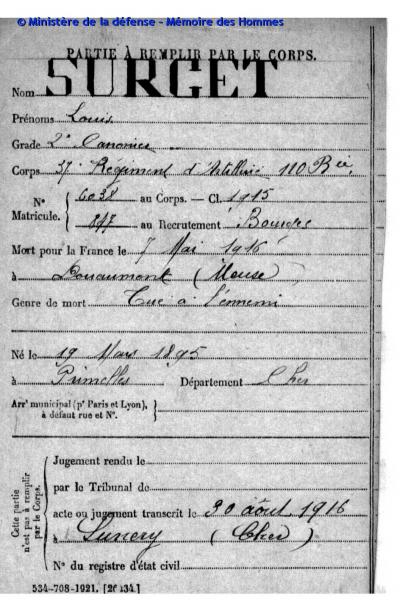 © Ministère de la défense - Mémoire des Hommes
PARTIE À REMPLIR PAR LE CORPS.
Nom SURGET
Prénoms Louis
Grade 2e Canonnier
Corps 37e Régiment d'Artillerie 110 Bie
N° Matricule. { 6038 au Corps. — Cl. 1915
847 au Recrutement Bourges
Mort pour la France le 7 Mai 1916
à Douaumont (Meuse)
Genre de mort Tué à l'ennemi
Né le 19 Mars 1895
à Primelles Département Cher
Arrt municipal (pr Paris et Lyon), à défaut rue et N°.
Cette partie n'est pas à remplir par le Corps.
Jugement rendu le
par le Tribunal de
acte ou jugement transcrit le 30 août 1916
à Lunery (Cher)
N° du registre d'état civil
534-708-1921. [26434.]